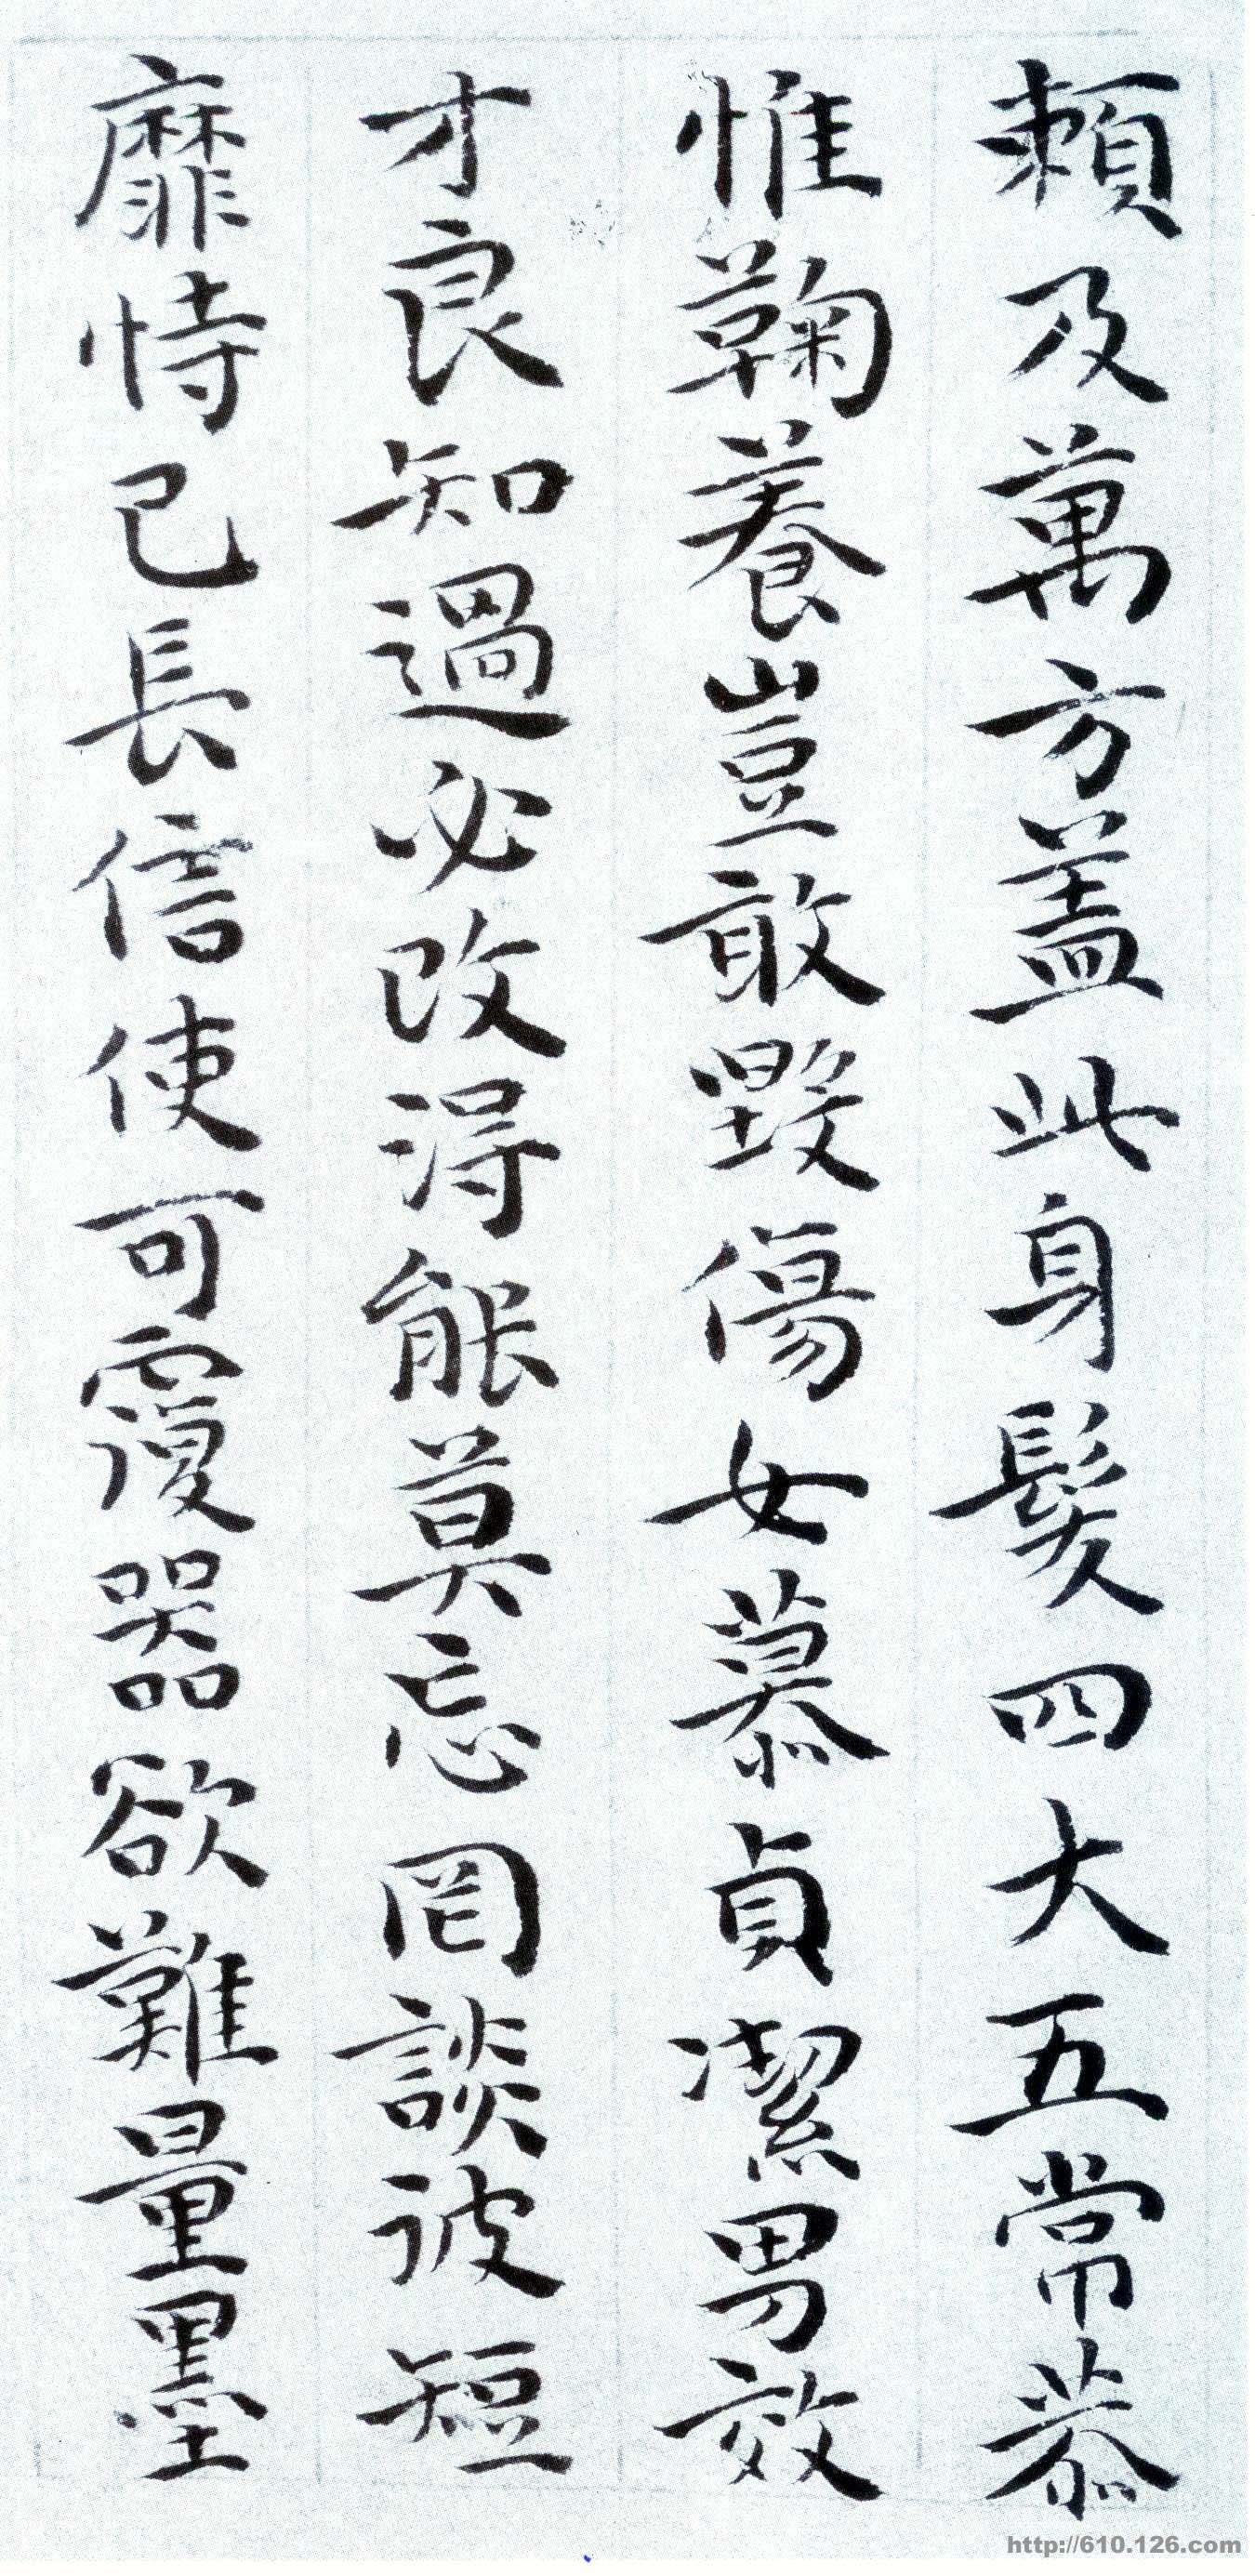 賴及萬方蓋此身髮四大五常恭
惟鞠養豈敢毀傷女慕貞潔男效
才良知過必改得能莫忘罔談彼短
靡恃己長信使可覆器欲難量墨
http://610.126.com